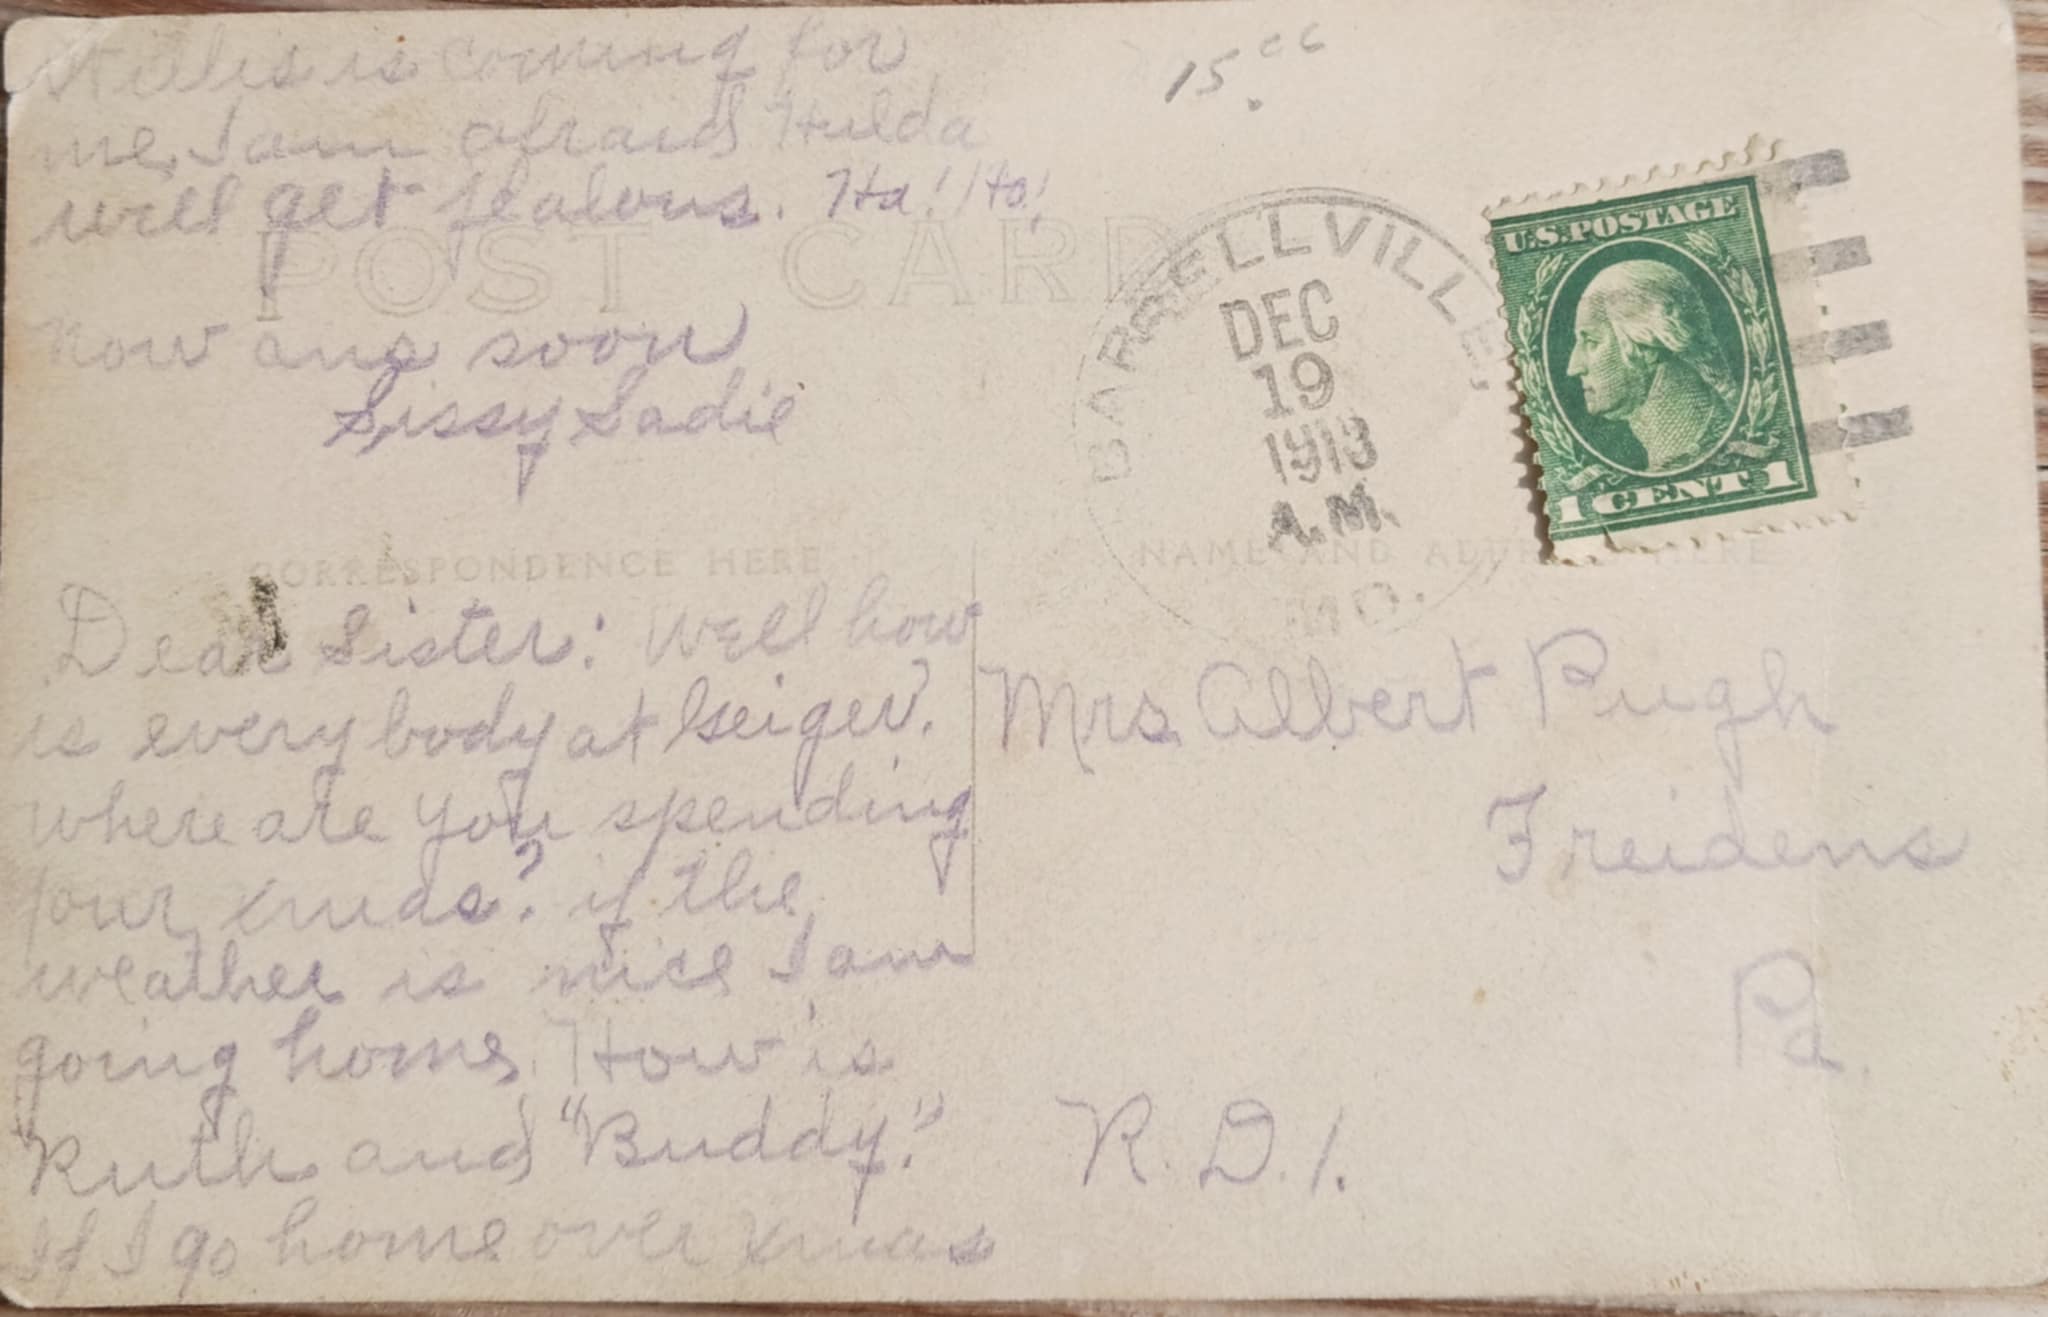 Willis is coming for
me, I am afraid Hulda
will get jealous. Ha! Ha!
Now ans soon
Sissy Sadie
15.cc
POST CARD
BARRELLVILLE,
DEC
19
1913
A.M.
MD.
U.S. POSTAGE
1 CENT 1
CORRESPONDENCE HERE
NAME AND ADDRESS HERE
Dear Sister: Well how
is every body at Geiger.
where are you spending
your xmas? if the
weather is nice I am
going home. How is
Ruth and "Buddy."
If I go home over xmas
Mrs. Albert Pugh
Freidens
Pa.
R. D. 1.